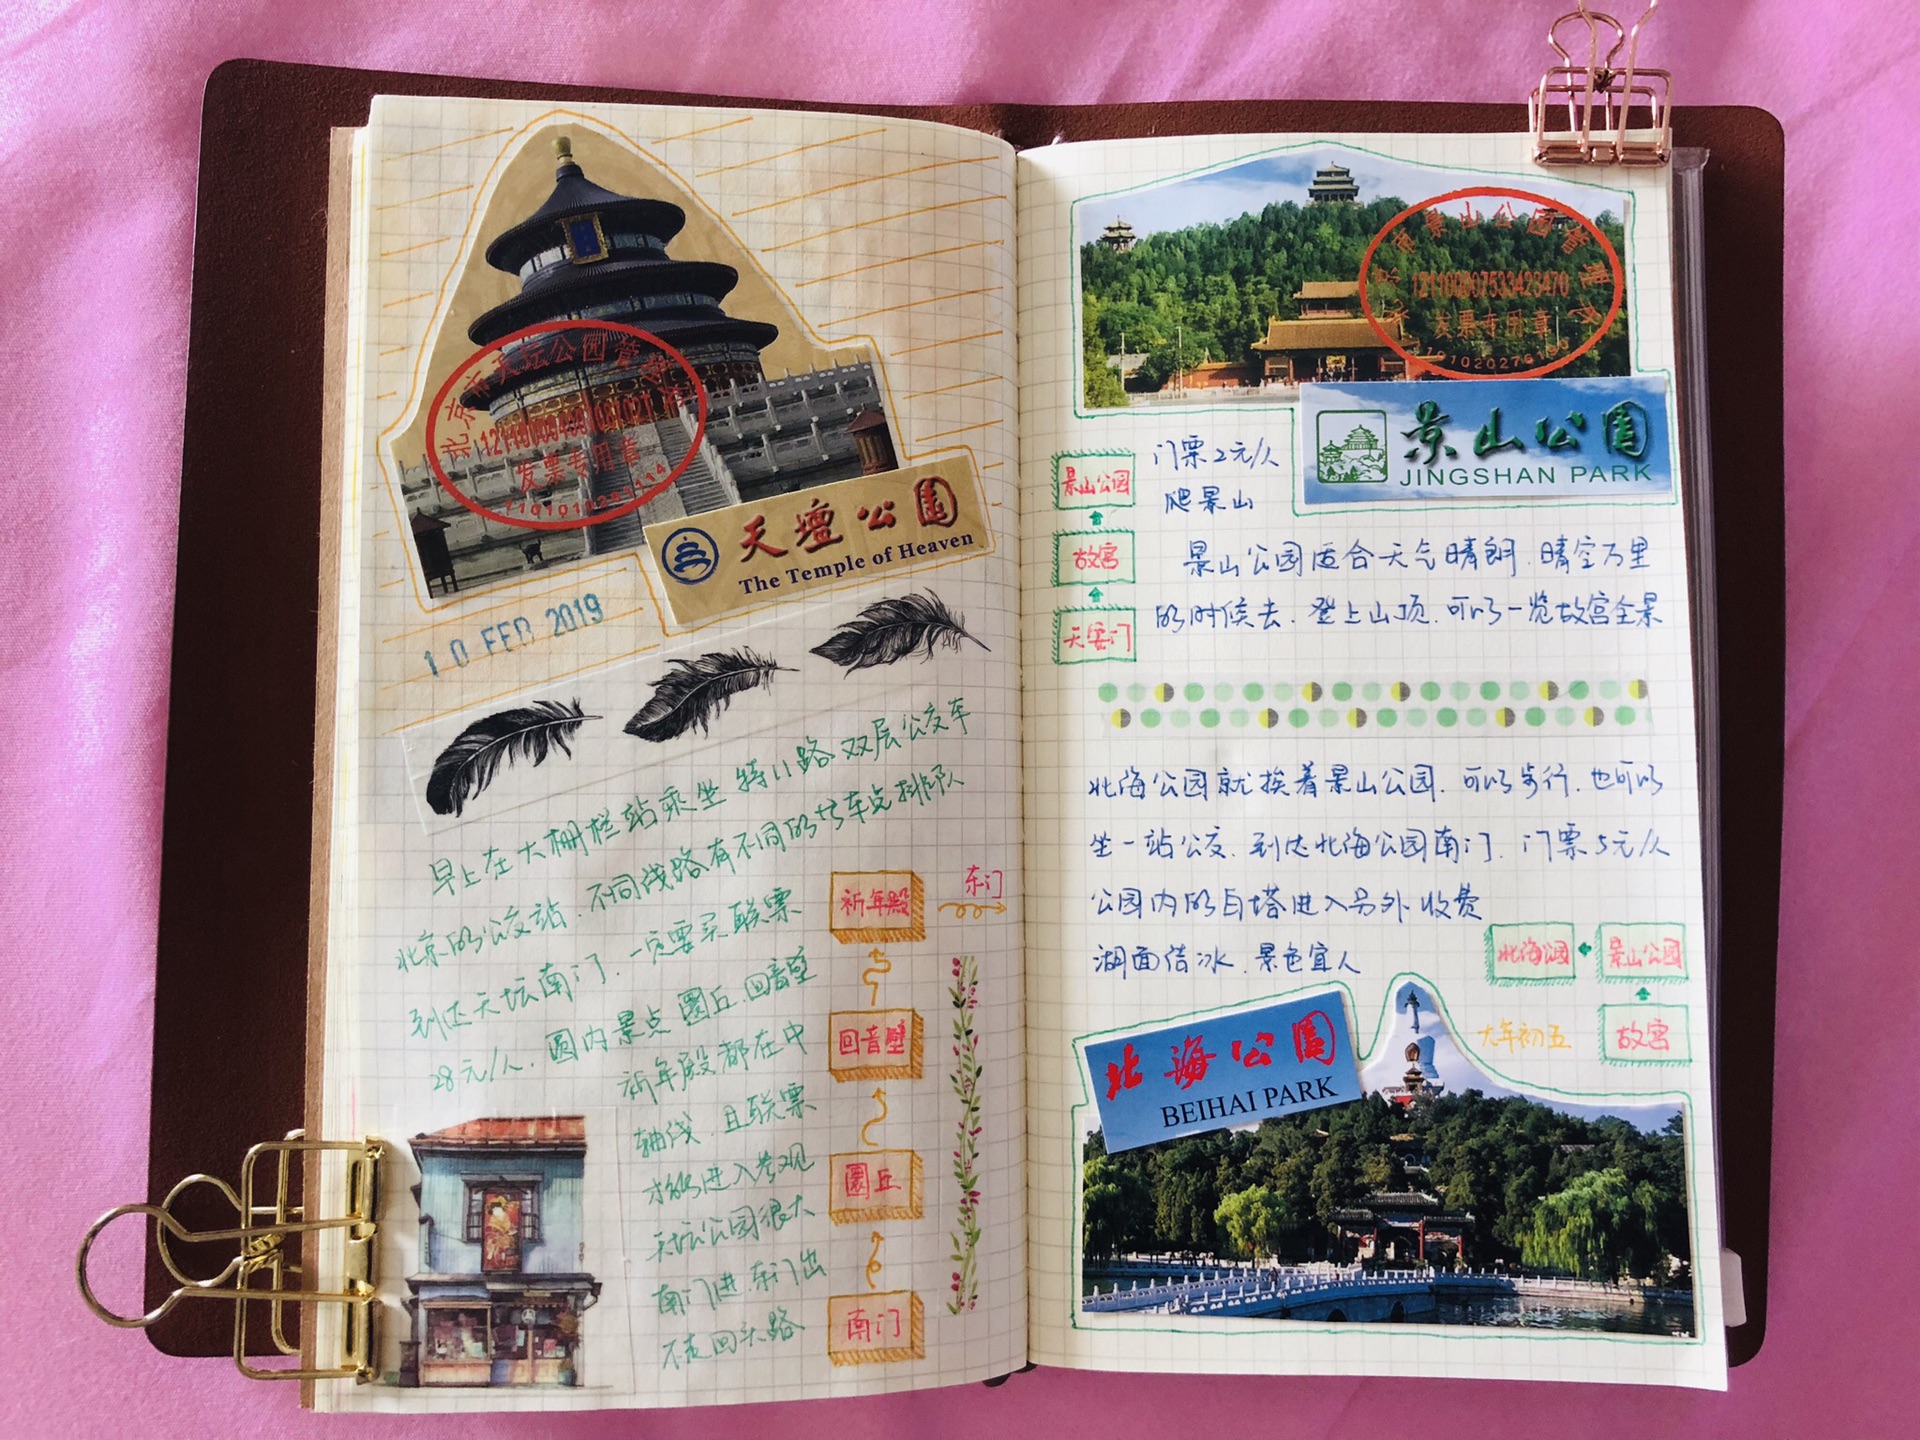 北京市天坛公园管理处
发票专用章
天壇公園
The Temple of Heaven
10 FEB 2019
早上在大栅栏站乘坐特11路双层公交车
北京的公交站，不同线路有不同的等车点排队
到达天坛南门，一定要买联票
28元/人，园内景点圜丘回音壁
祈年殿都在中
轴线，且联票
才能进入参观
天坛公园很大
南门进，东门出
不走回头路
东门
祈年殿
回音壁
圜丘
南门
北京市景山公园管理处
发票专用章
景山公園
JINGSHAN PARK
门票2元/人
爬景山
景山公园
故宫
天安门
景山公园适合天气晴朗，晴空万里
的时候去，登上山顶，可以一览故宫全景
北海公园就挨着景山公园，可以步行，也可以
坐一站公交，到达北海公园南门，门票5元/人
公园内的白塔进入另外收费
湖面结冰，景色宜人
北海公园
景山公园
故宫
大年初五
北海公園
BEIHAI PARK